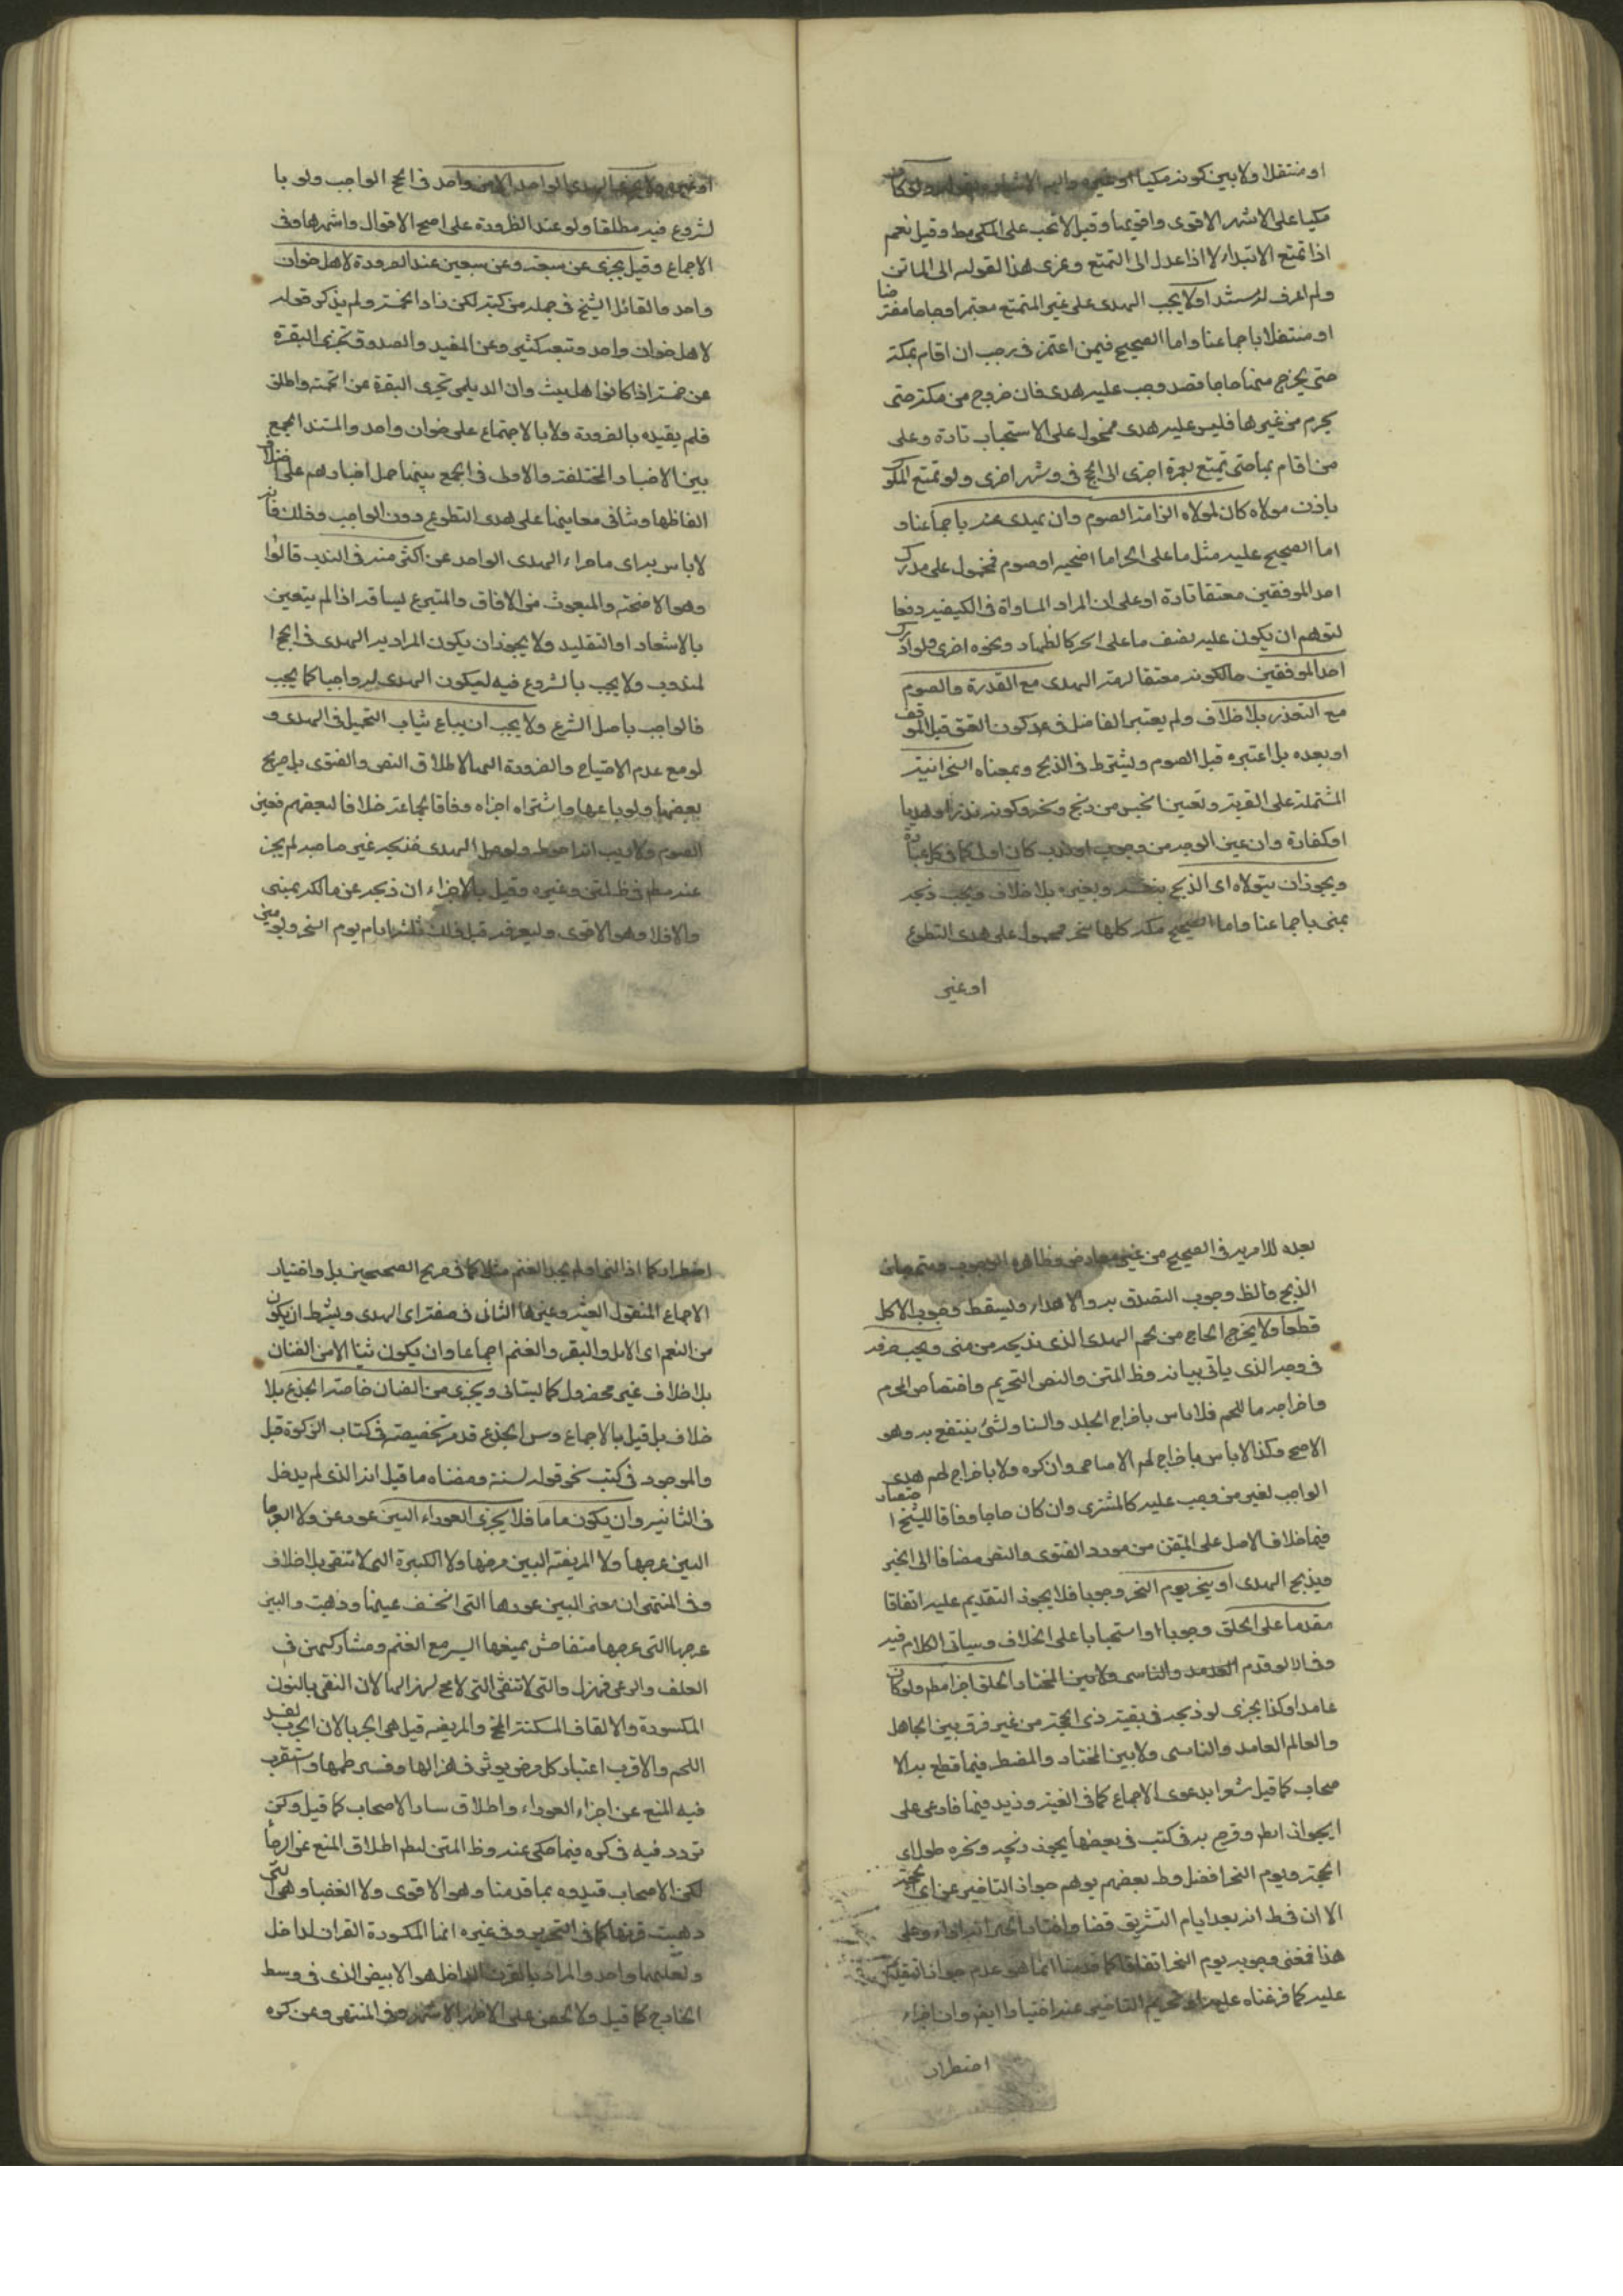 او متنفلا ولا بين كونه مكيا او غيره واليه الاشارة بقوله ولو كان
مكيا على الاشهر الاقوى واقويها وقيل لا تجب على المكي مط وقيل نعم
اذا تمتع الابتداء لا اذا عدل الى التمتع وعزى هذا القول الى الماتن
ولم اعرف له مستندا ولا يجب الهدى على غير المتمتع معتمرا او حاجا مفترضا
او متنفلا باجماعنا واما الصحيح فيمن اعتمر في رجب ان اقام بمكة
حتى يخرج منها حاجا فقد وجب عليه هدى فان خروج من مكة حتى
يحرم من غيرها فليس عليه هدى فمحمول على الاستحباب تارة وعلى
من اقام بها حتى تمتع بعمرة اخرى الى الحج في وشهر اخرى ولو تمتع المملوك
باذن مولاه كان لمولاه الزامه الصوم وان يهدى عنه باجماعنا و
اما الصحيح عليه مثل ما على الحر اما اضحيه او صوم فمحمول على مدرك
احد الموقفين معتقا تارة او على ان المراد المساواة في الكيفيه دفعا
لتوهم ان يكون عليه نصف ما على الحر كالظهار ونحوه اخرى ولو ادرك
احد الموقفين حالكونه معتقا لزمه الهدى مع القدرة والصوم
مع التعذر بلا خلاف ولم يعتبر الفاضل في عد كون العتق قبل الموقف
او بعده بل اعتبره قبل الصوم وليشترط في الذبح وبمعناه النحر النية
المشتملة على القربة وتعيين الجنس من ذبح ونحر وكونه نذرا او هديا
او كفارة وان عين الوجه من وجوب او ندب كان اولى كما في كل عبادة
ويجوز ان يتولاه اى الذبح بنفسه وبغيره بلا خلاف ويجب ذبحه
بمنى باجماعنا واما الصحيح مكة كلها منحر فمحمول على هدى التطوع
او غير
او غيره ولا يجزى الهدى الواحد الا عن واحد في الحج الواجب ولو با
لشروع فيه مطلقا ولو عند الظرورة على اصح الاقوال واشهرها وفى
الاجماع وقيل يجزى عن سبعة وعن سبعين عند الضرورة لاهل خوان
واحد والقائل الشيخ في جملة من كتبه لكن زاد الخمسة ولم يذكر قوله
لاهل خوان واحد وتبعه كثير وعن المفيد والصدوق تجزى البقرة
عن خمسة اذا كانوا اهل بيت وان الديلمي تجزى البقرة عن الخمسة واطلق
فلم يقيده بالضرورة ولا بالاجتماع على خوان واحد والمستند الجمع
بين الاخبار المختلفة والاولى في الجمع بينها حمل اخبارهم على اختلاف
الفاظها وتنافى معانيها على هدى التطوع دون الواجب وذلك فانه
لا باس به اى باجزاء الهدى الواحد عن اكثر منه في الندب قالوا
وهو الاضحية والمبعوث من الافاق والمتبرع بسياقه اذا لم يتعين
بالاشعار او التقليد ولا يجوز ان يكون المراد به الهدى في الحج ا
لمندوب ولا يجب بالشروع فيه ليكون الهدى له واجبا كما يجب
في الواجب باصل الشرع ولا يجب ان يباع ثياب التجمل في الهدى و
لو مع عدم الاحتياج والضرورة اليها لاطلاق النص والفتوى بل صريح
بعضها ولو باعها واشتراه اجزاه وفاقا لجماعة خلافا لبعضهم فعين
الصوم ولا ريب انه احوط ولو ضل الهدى فذبحه غير صاحبه لم يجز
عنه مطم في ظ المتن وغيره وقيل بالاجزاء ان ذبحه عن مالكه بمنى
والا فلا وهو الاقوى وليعرفه قبل ذلك ثلثة ايام يوم النحر ويومين
بعده للامر به في الصحيح من غير معارض وظاهره الوجوب
الذبح والظ وجوب التصدق به والاهداء ويسقط وجوب الاكل
قطعا ولا يخرج الحاج من لحم الهدى الذى يذبحه من منى ويجب صرفه
في وجهه الذى ياتى بيانه وظ المتن والنص التحريم واختصاص الحرم
واخراجه باللحم فلا باس باخراج الجلد والسنام ولشئ ينتفع به وهو
الاصح وكذا لا باس باخراج لحم الاضاحى وان كره ولا باخراج لحم هدى
الواجب لغير من وجب عليه كالمشترى وان كان حاجا وفاقا للشيخ اقتصارا
فيما خلاف الاصل على المتيقن من مورد الفتوى والنص مضافا الى الخبر
ويذبح الهدى او ينحر يوم النحر وجوبا فلا يجوز التقديم عليه اتفاقا
مقدما على الحلق وجوبا او استحبابا على الخلاف وسياتى الكلام فيه
وفى انه لو قدم الحلق اجزا مطم ولو كان
عامدا وكذا يجزى لو ذبحه في بقية ذى الحجة من غير فرق بين الجاهل
والعالم العامد والناسى ولا بين المختار والمضطر فيما قطع به الا
صحاب كما قيل مشعرا بدعوى الاجماع كما في الغنية وزيد فيها فادعى على
الجواز ايظ وصرح به في كتب في بعضها يجوز ذبحه ونحره طول ذى
الحجة ويوم النحر افضل وظ بعضهم يوهم جواز التاخير عن ذى الحجة
الا ان في ط انه بعد ايام التشريق قضا واختار الحلى انه اداء وعلى
هذا فمعنى وجوبه يوم النحر اتفاقا كما قدمنا انما هو عدم جواز التقديم
عليه كما فرغناه عليه او تحريم التاخير عنه اختيارا ايض وان اجزاء
اضطرارا
اضطرارا كما اذا النى او لم يجد الغنم مثلا كما في صريح الصحيحين بل واختيارا
الاجماع المنقول الغنيه وغيرها الثانى في صفته اى الهدى ويشترط ان يكون
من النعم اى الابل والبقر والغنم اجماعا وان يكون ثنيا الا من الضان
بلا خلاف غير محفزول كما ليستانى ويجزى من الضان خاصة الجذع بلا
خلاف بل قيل بالاجماع وسن الجذع قد مر تخصيصه في كتاب الزكوة قيل
والموجود في كتب نحو قوله لسنة ومعناه ما قيل انه الذى لم يدخل
في الثانيه وان يكون تاما فلا يجزى العوراء البين عوره عن ولا العرجا
البين عرجها ولا المريضة البين مرضها ولا الكبيرة التى لا تنقى بلا خلاف
وفى المنتهى ان معنى البين عورها التى انخسف عينها وذهبت والبين
عرجها التى عرجها متفاحش يمنعها السير مع الغنم ومشاركتهن في
العلف والرعى فتهزل والتى لا تنقى التى لا مخ لها لهزالها لان النقى بالنون
المكسورة والالقاف المسكنة المخ والمريضه قيل هى الجربا لان الجرب يفسد
اللحم والاقرب اعتبار كل مرض يوثر في هزالها وفسر طعمها واستقرب
فيه المنع عن اجزاء العوراء واطلاق سار الاصحاب كما قيل ولكن
تردد فيه في كره فيما حكى عنه وظ المتن لبط اطلاق المنع عن العرجا
لكن الاصحاب قيدوه بما قدمنا وهو الاقوى ولا العضبا وهى التى
ذهبت قرنها كما في التحرير وفى غيره انها المكسورة القرن الداخل
ولعلهما واحد والمراد بالقرن الداخل هو الابيض الذى في وسط
الخارج كما قيل ولا الخصى على الاظهر الاشهر وفى المنتهى وعن كره